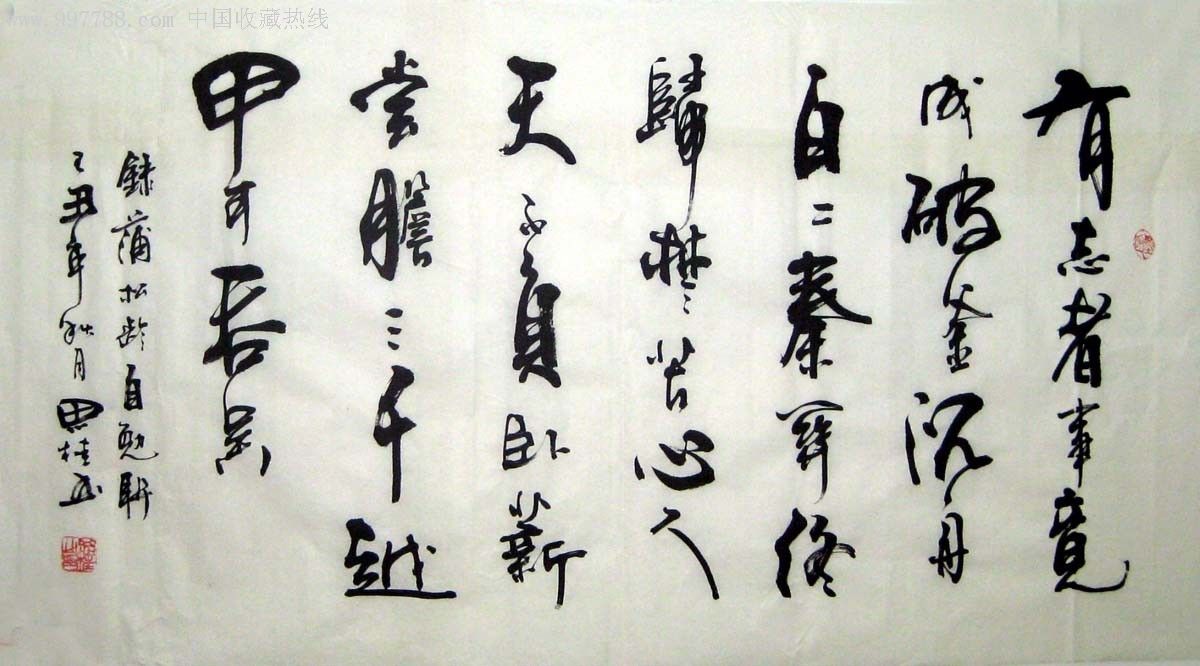 www.997788.com 中国收藏热线
有志者事竟
成破釜沉舟
百二秦関终
歸楚苦心人
天不負卧薪
尝膽三千越
甲可吞吴
録蒲松龄自勉联
己丑年秋月